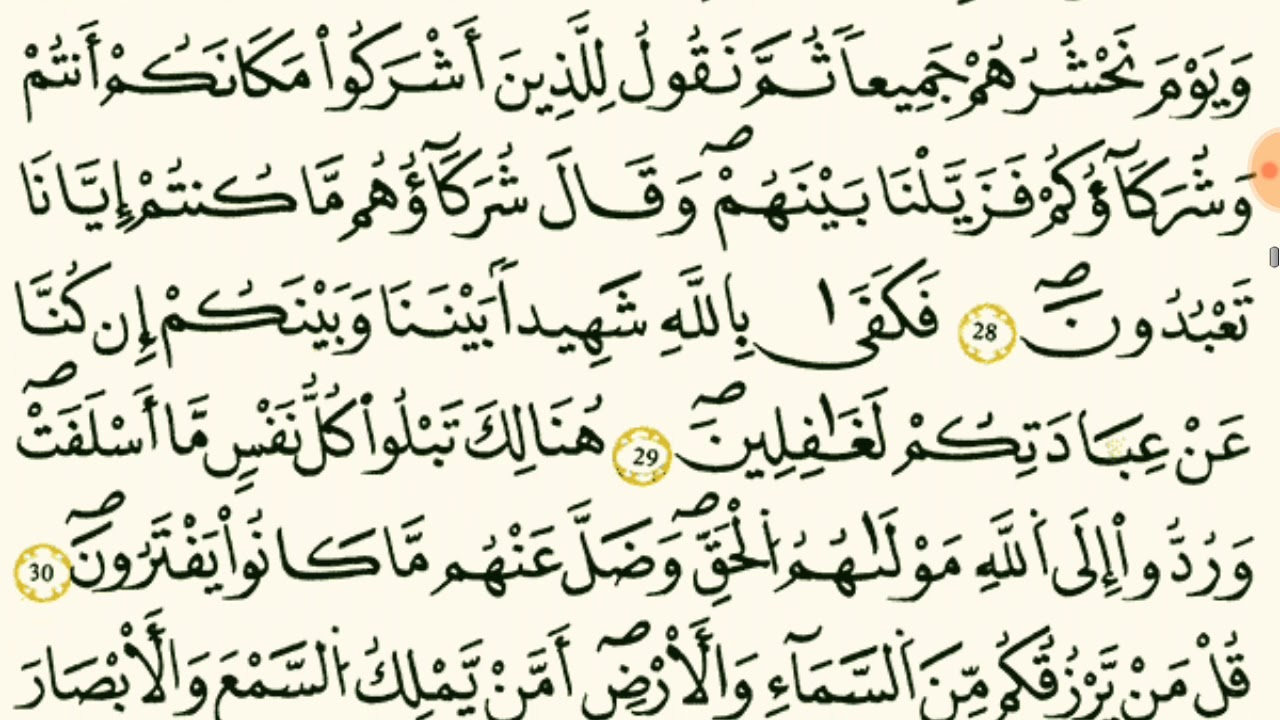 وَيَوْمَ نَحْشُرُهُمْ جَمِيعاً ثُمَّ نَقُولُ لِلَّذِينَ أَشْرَكُواْ مَكَانَكُمْ أَنتُمْ
وَشُرَكَآؤُكُمْ فَزَيَّلْنَا بَيْنَهُمْ صہ وَقَالَ شُرَكَآؤُهُم مَّا كُنتُمْ إِيَّانَا
تَعْبُدُونَ صہ 28 فَكَفَىٰ بِاللَّهِ شَهِيداً بَيْنَنَا وَبَيْنَكُمْ إِن كُنَّا
عَنْ عِبَادَتِكُمْ لَغَٰفِلِينَ صہ 29 هُنَالِكَ تَبْلُواْ كُلُّ نَفْسٍ مَّا أَسْلَفَتْ صہ
وَرُدُّواْ إِلَى اَللَّهِ مَوْلَىٰهُمُ اُلْحَقِّ صہ وَضَلَّ عَنْهُم مَّا كَانُواْ يَفْتَرُونَ صہ 30
قُلْ مَنْ يَّرْزُقُكُم مِّنَ اَلسَّمَآءِ وَالَْأرْضِ صہ أَمَّنْ يَّمْلِكُ اُلسَّمْعَ وَالَْأبْصَارَ